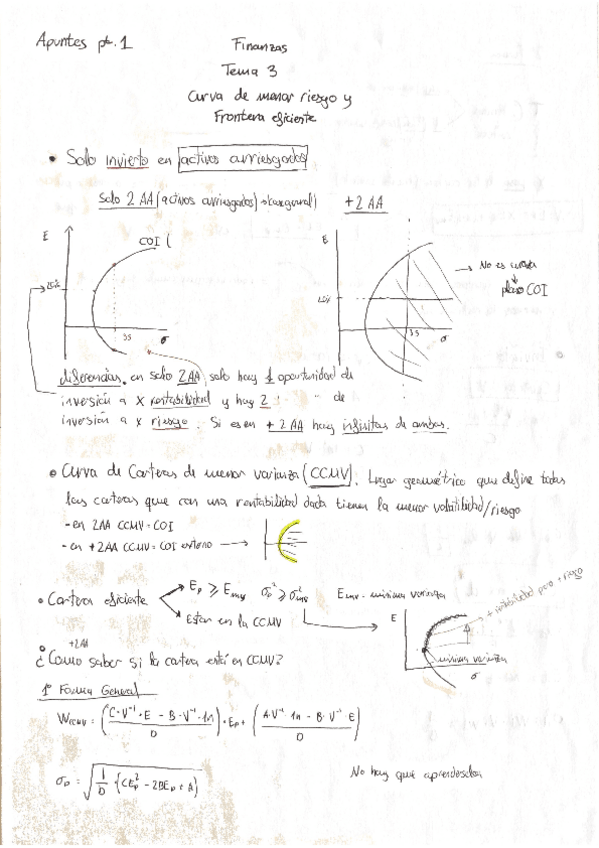 Apuntes pt. 1
Finanzas
Tema 3
Curva de menor riesgo y
Frontera eficiente
• Solo invierto en activos arriesgados
Solo 2 AA (activos arriesgados)
+2 AA
E
COI
35
σ
E
35
σ
→ No es curva
plano COI
diferencias, en solo 2AA, solo hay 1 oportunidad de
inversión a x rentabilidad y hay 2 " " de
inversión a x riesgo. Si es en +2 AA hay infinitas de ambas.
• Curva de Carteras de menor varianza (CCMV). Lugar geométrico que define todas
las carteras que con una rentabilidad dada tienen la menor volatilidad/riesgo
- en 2AA CCMV = COI
- en +2AA CCMV = COI externo →
• Cartera eficiente
Ep ≥ Emv σp² ≥ σmv²
Estar en la CCMV
Emv - mínima varianza
E
+ rentabilidad pero + riesgo
mínima varianza
σ
+2AA
¿Como saber si la cartera está en CCMV?
1º Forma General
Wccmv = ((C·V⁻¹·E - B·V⁻¹·1n)/D)·Ep + ((A·V⁻¹·1n - B·V⁻¹·E)/D)
σp = √(1/D · (CEp² - 2BEp + A))
No hay que aprenderselas